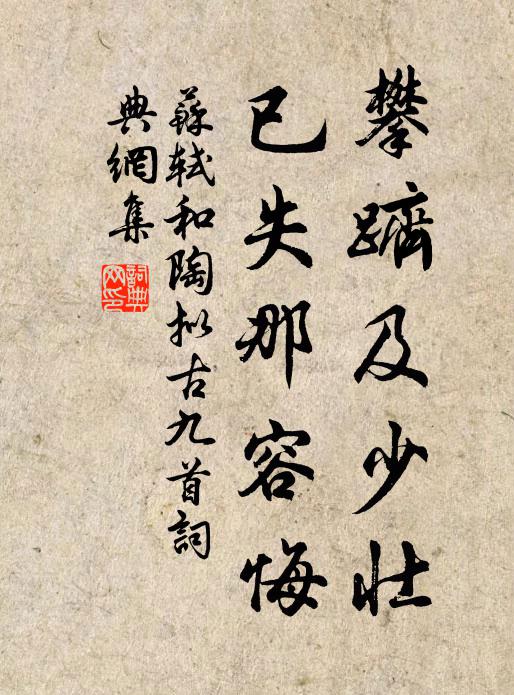 攀躋及少壯
已失那容悔
蘇軾和陶拟古九首詞
典網集
詞典
网印